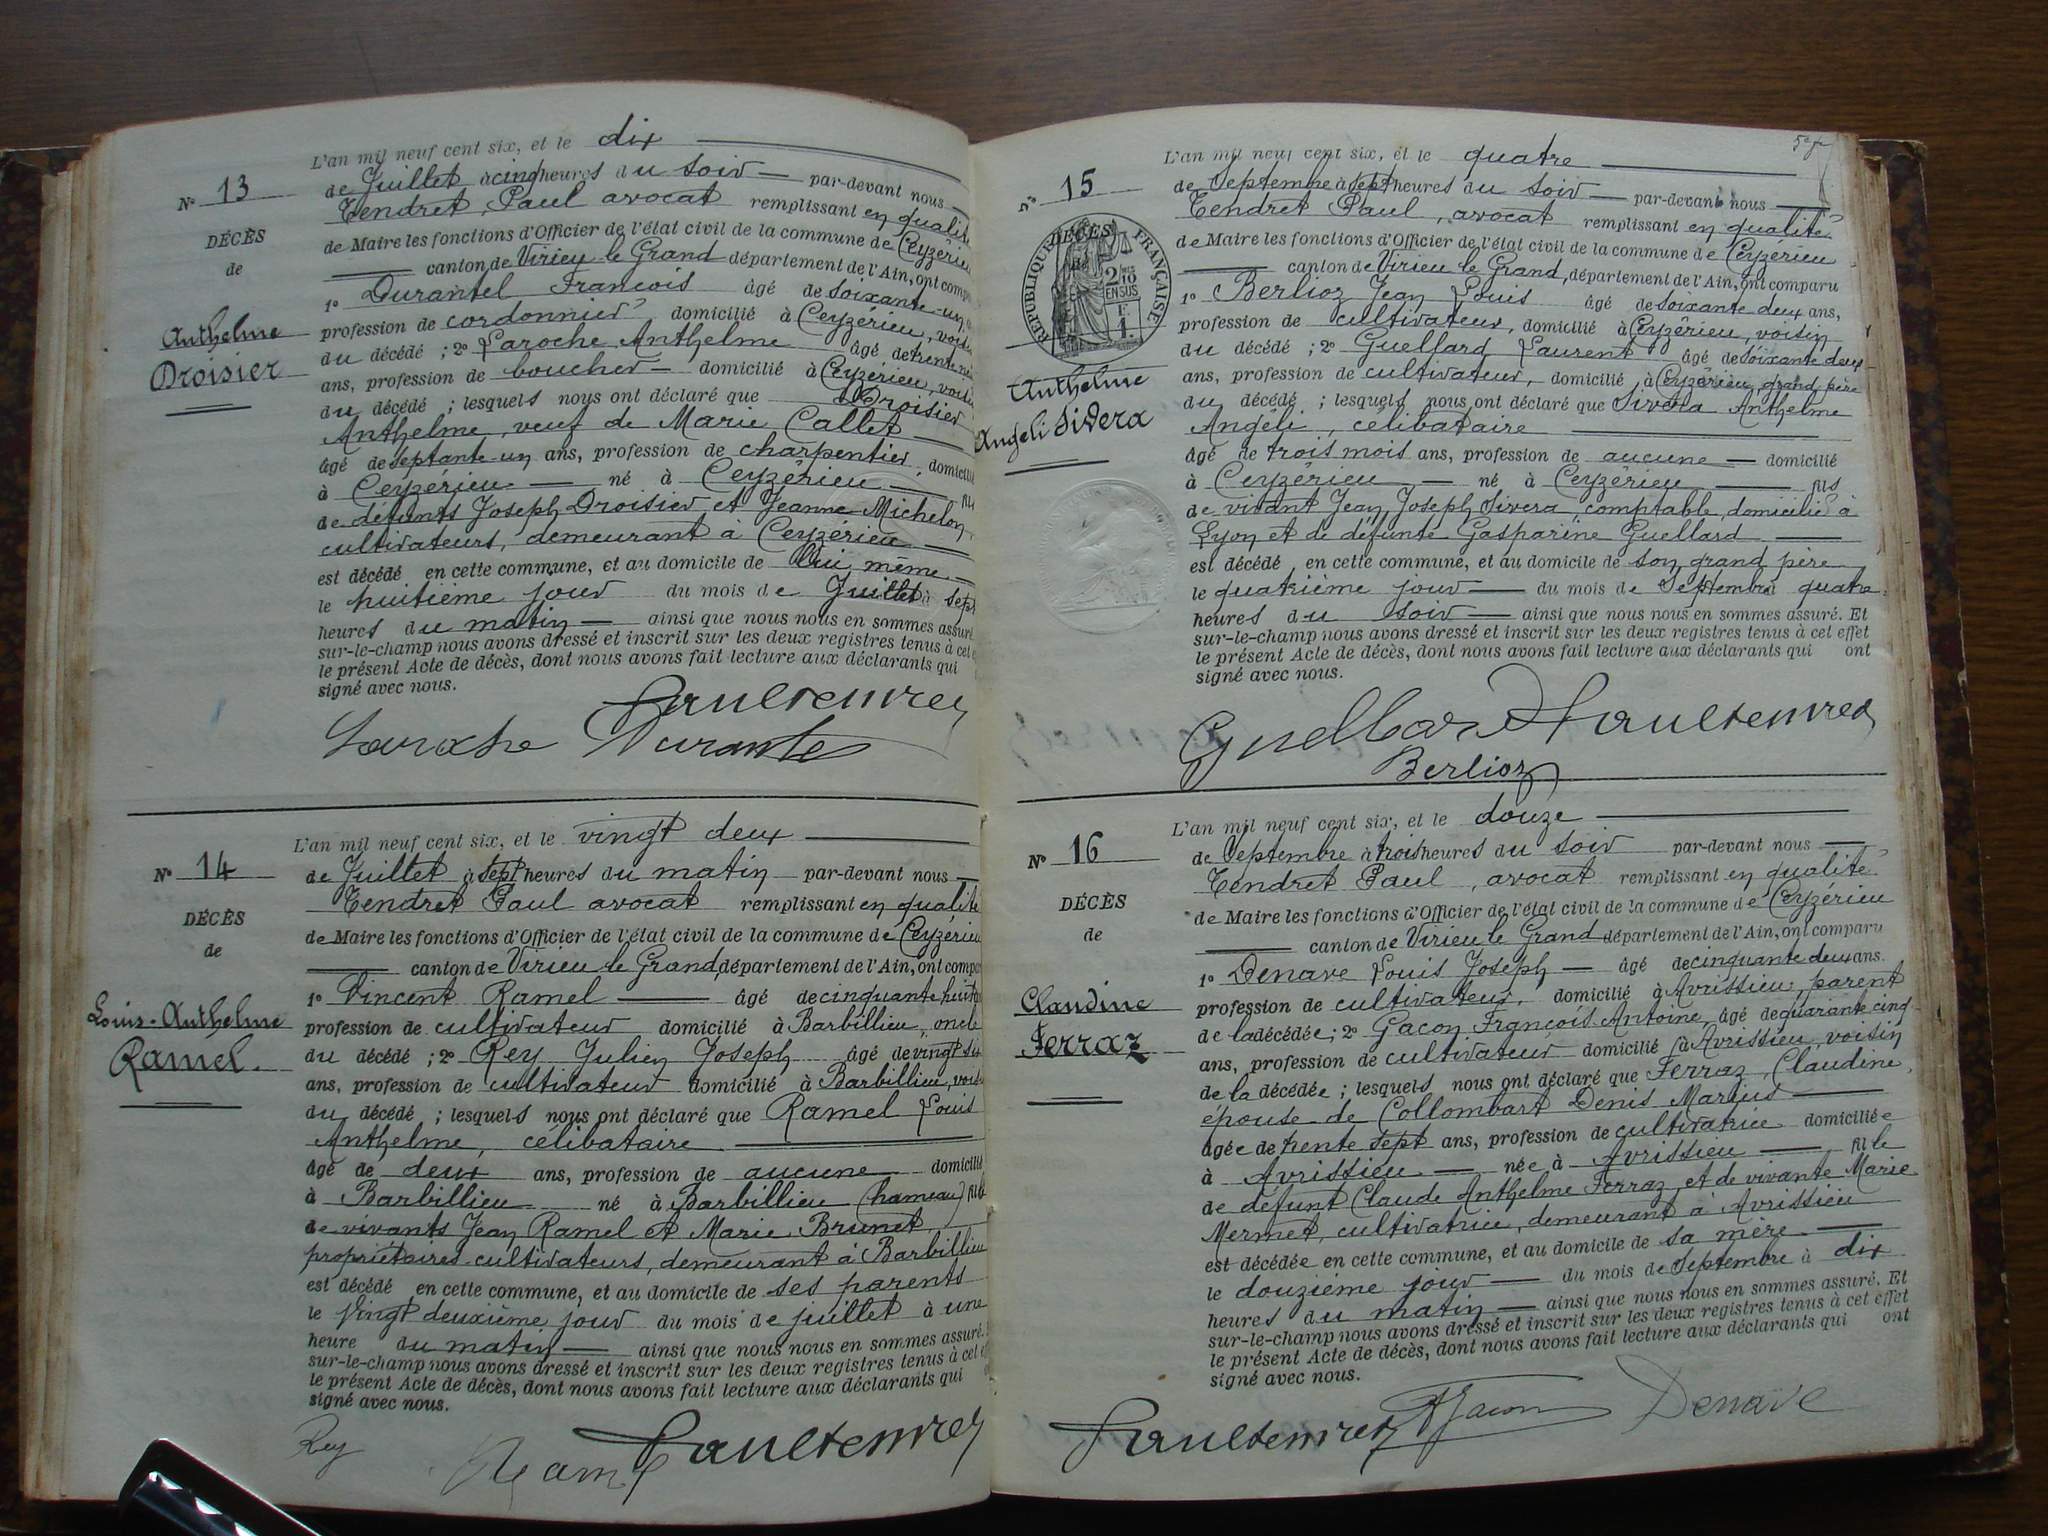 L'an mil neuf cent six, et le dix
N° 13
de Juillet à cinq heures du soir par-devant nous
Tendret Paul avocat remplissant en qualité
DÉCÈS
de Maire les fonctions d'Officier de l'état civil de la commune de Ceyzérieu
de
canton de Virieu-le-Grand département de l'Ain, ont comparu
1° Durantel François âgé de soixante-un
Anthelme
profession de cordonnier domicilié à Ceyzérieu, voisin
Droisier
du décédé ; 2° Laroche Anthelme âgé de trente
ans, profession de boucher domicilié à Ceyzérieu, voisin
du décédé ; lesquels nous ont déclaré que Droisier
Anthelme, veuf de Marie Callet
âgé de septante-un ans, profession de charpentier, domicilié
à Ceyzérieu né à Ceyzérieu fils
de défunts Joseph Droisier et Jeanne Michelon,
cultivateurs, demeurant à Ceyzérieu
est décédé en cette commune, et au domicile de lui même
le huitième jour du mois de Juillet à sept
heures du matin ainsi que nous nous en sommes assuré.
sur-le-champ nous avons dressé et inscrit sur les deux registres tenus à cet
le présent Acte de décès, dont nous avons fait lecture aux déclarants qui
signé avec nous.
Paul Tendret
Laroche Durantel
L'an mil neuf cent six, et le vingt deux
N° 14
de Juillet à sept heures du matin par-devant nous
Tendret Paul avocat remplissant en qualité
DÉCÈS
de Maire les fonctions d'Officier de l'état civil de la commune de Ceyzérieu
de
canton de Virieu-le-Grand, département de l'Ain, ont comparu
1° Vincent Ramel âgé de cinquante huit
Louis-Anthelme
profession de cultivateur domicilié à Barbillieu, oncle
Ramel.
du décédé ; 2° Rey Julien Joseph âgé de vingt six
ans, profession de cultivateur domicilié à Barbillieu, voisin
du décédé ; lesquels nous ont déclaré que Ramel Louis
Anthelme, célibataire
âgé de deux ans, profession de aucune domicilié
à Barbillieu né à Barbillieu (hameau) fils
de vivants Jean Ramel et Marie Brunet,
propriétaires-cultivateurs, demeurant à Barbillieu
est décédé en cette commune, et au domicile de ses parents
le vingt deuxième jour du mois de juillet à une
heure du matin ainsi que nous nous en sommes assuré.
sur-le-champ nous avons dressé et inscrit sur les deux registres tenus à cet
le présent Acte de décès, dont nous avons fait lecture aux déclarants qui
signé avec nous.
Rey Ramel Paul Tendret
L'an mil neuf cent six, et le quatre
N° 15
de Septembre à sept heures du soir par-devant nous
Tendret Paul, avocat remplissant en qualité
DÉCÈS
de
RÉPUBLIQUE FRANÇAISE
2/10 EN SUS
1 F
de Maire les fonctions d'Officier de l'état civil de la commune de Ceyzérieu
canton de Virieu le Grand, département de l'Ain, ont comparu
1° Berlioz Jean Louis âgé de soixante deux ans,
profession de cultivateur, domicilié à Ceyzérieu, voisin
du décédé ; 2° Guellard Laurent âgé de soixante deux
Anthelme
ans, profession de cultivateur, domicilié à Ceyzérieu, grand père
Angéli Sivera
du décédé ; lesquels nous ont déclaré que Sivera Anthelme
Angéli, célibataire
âgé de trois mois ans, profession de aucune domicilié
à Ceyzérieu né à Ceyzérieu fils
de vivant Jean Joseph Sivera, comptable, domicilié à
Lyon et de défunte Gasparine Guellard
est décédé en cette commune, et au domicile de son grand père
le quatrième jour du mois de Septembre quatre
heures du soir ainsi que nous nous en sommes assuré. Et
sur-le-champ nous avons dressé et inscrit sur les deux registres tenus à cet effet
le présent Acte de décès, dont nous avons fait lecture aux déclarants qui ont
signé avec nous.
Guellard Paul Tendret
Berlioz
L'an mil neuf cent six, et le douze
N° 16
de Septembre à trois heures du soir par-devant nous
Tendret Paul, avocat remplissant en qualité
DÉCÈS
de Maire les fonctions d'Officier de l'état civil de la commune de Ceyzérieu
de
canton de Virieu le Grand département de l'Ain, ont comparu
1° Denave Louis Joseph âgé de cinquante deux ans.
Claudine
profession de cultivateur, domicilié à Avrissieu, parent
Ferraz
de la décédée ; 2° Gacon François Antoine, âgé de quarante cinq
ans, profession de cultivateur domicilié à Avrissieu, voisin
de la décédée ; lesquels nous ont déclaré que Ferraz, Claudine,
épouse de Collombart Denis Marius
âgée de trente sept ans, profession de cultivatrice domiciliée
à Avrissieu née à Avrissieu fille
de défunt Claude Anthelme Ferraz et de vivante Marie
Mermet, cultivatrice, demeurant à Avrissieu
est décédée en cette commune, et au domicile de sa mère
le douzième jour du mois de Septembre à dix
heures du matin ainsi que nous nous en sommes assuré. Et
sur-le-champ nous avons dressé et inscrit sur les deux registres tenus à cet effet
le présent Acte de décès, dont nous avons fait lecture aux déclarants qui ont
signé avec nous.
Paul Tendret Gacon Denave